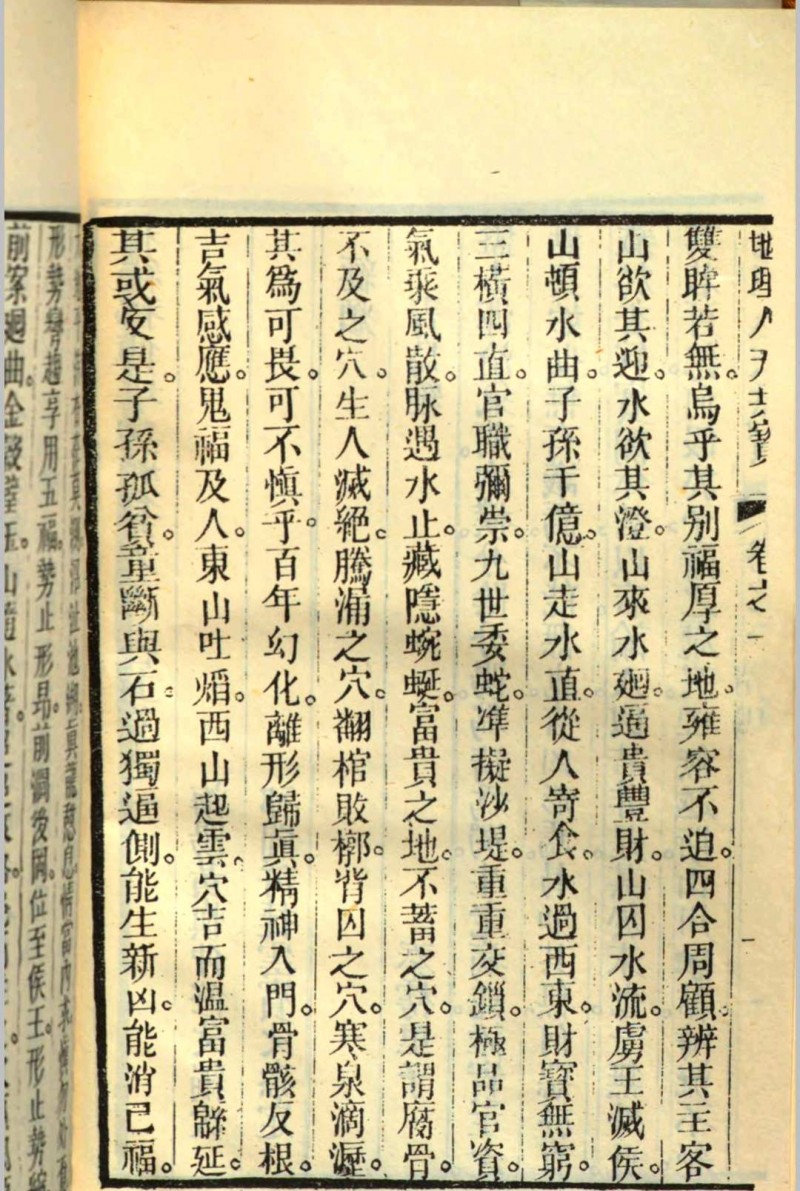 雙眸若無。烏乎其别福厚之地。雍容不迫。四合周顧。辨其主客
山欲其迎。水欲其澄。山來水廻。逼貴豐財。山囚水流。虜王滅侯。
山頓水曲。子孫千億。山走水直。從人寄食。水過西東。財寶無窮。
三橫四直。官職彌崇。九世委蛇。凖擬沙堤。重重交鎖。極品官資。
氣乘風散。脉遇水止。藏隱蜿蜒。富貴之地。不蓄之穴。是謂腐骨。
不及之穴。生人滅絕。騰漏之穴。翻棺敗槨。背囚之穴。寒泉滴瀝。
其爲可畏。可不愼乎。百年幻化。離形歸眞。精神入門。骨骸反根。
吉氣感應。鬼福及人。東山吐焰。西山起雲。穴吉而温。富貴緜延。
其或反是。子孫孤貧。童斷與石。過獨逼側。能生新凶。能消已福。
享用五福。勢止形昻。前澗後岡。位至侯王。形止勢